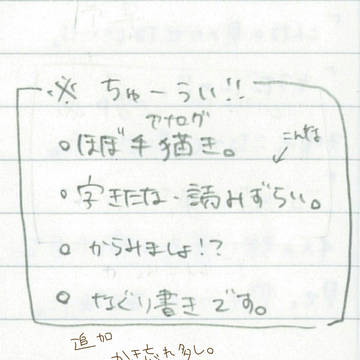 ※ ちゅーうい!!
アナログ
○ほぼ手描き。
こんな
○字きたな・読みずらい。
○からみましょ!?
○なぐり書きです。
追加
かき忘れ多し。